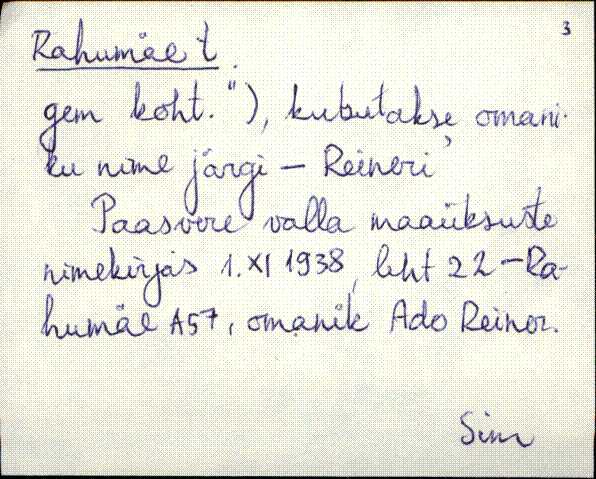 3
Rahumäe t.
gem koht."), kutsutakse omani-
ku nime järgi – Reineri
Paasvere valla maaüksuste
nimekirjas 1. XI 1938, leht 22 – Ra-
humäe A57, omanik Ado Reiner.